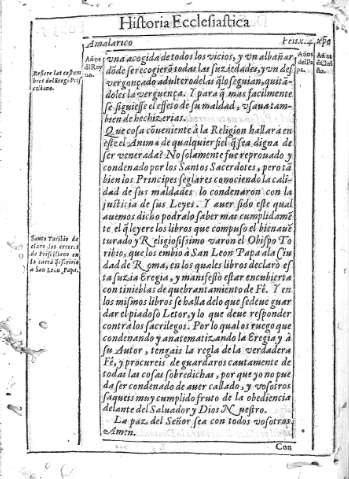 Historia Ecclesiastica
Amalarico
Felix.4.
xpõ
Años
del Rey
no.
Años
del Pa
pa.
Años
de Chri
sto.
vna acogida de todos los vicios, y vn albañar
dõde se recogierã todas las suziedades, y vn des
vergonçado adultero de las q̃ lo seguian, quitã
doles la verguença. Y para q̃ mas facilmente
se siguiesse el effeto de su maldad, vsaua tam-
bien de hechizerias.
Que cosa cõueniente à la Religion hallarà en
este el Anima de qualquier fiel q̃ sea digna de
ser venerada? No solamente fue reprouado y
condenado por los Santos Sacerdotes, pero tã
bien los Principes seglares conociendo la cali-
dad de sus maldades lo condenaron con la
justicia de sus Leyes. Y auer sido este qual
auemos dicho podralo saber mas cumplidamẽ
te el q̃ leyere los libros que compuso el bienaue
turado y Religiosissimo varon el Obispo To
ribio, que los embiò à San Leon Papa a la ciu
dad de Roma, en los quales libros declarò es
ta suzia Eregia, y manifestò estar encubierta
con tinieblas de quebrantamiento de Fè. Y en
los mismos libros se halla de lo que se deue guar
dar el piadoso Letor, y lo que deue responder
contra los sacrilegos. Por lo qual os ruego que
condenando y anatematizando la Eregia y à
su Autor, tengais la regla de la verdadera
Fè, y procureis de guardaros cautamente de
todas las cosas sobredichas, por que yo no pue
da ser condenado de auer callado, y vosotros
saqueis muy cumplido fruto de la obediencia
delante del Saluador y Dios Nuestro.
La paz del Señor sea con todos vosotros
Amen.
Con
Santo Turibio de
claro los errores
de Prisciliano en
à San Leon Papa.